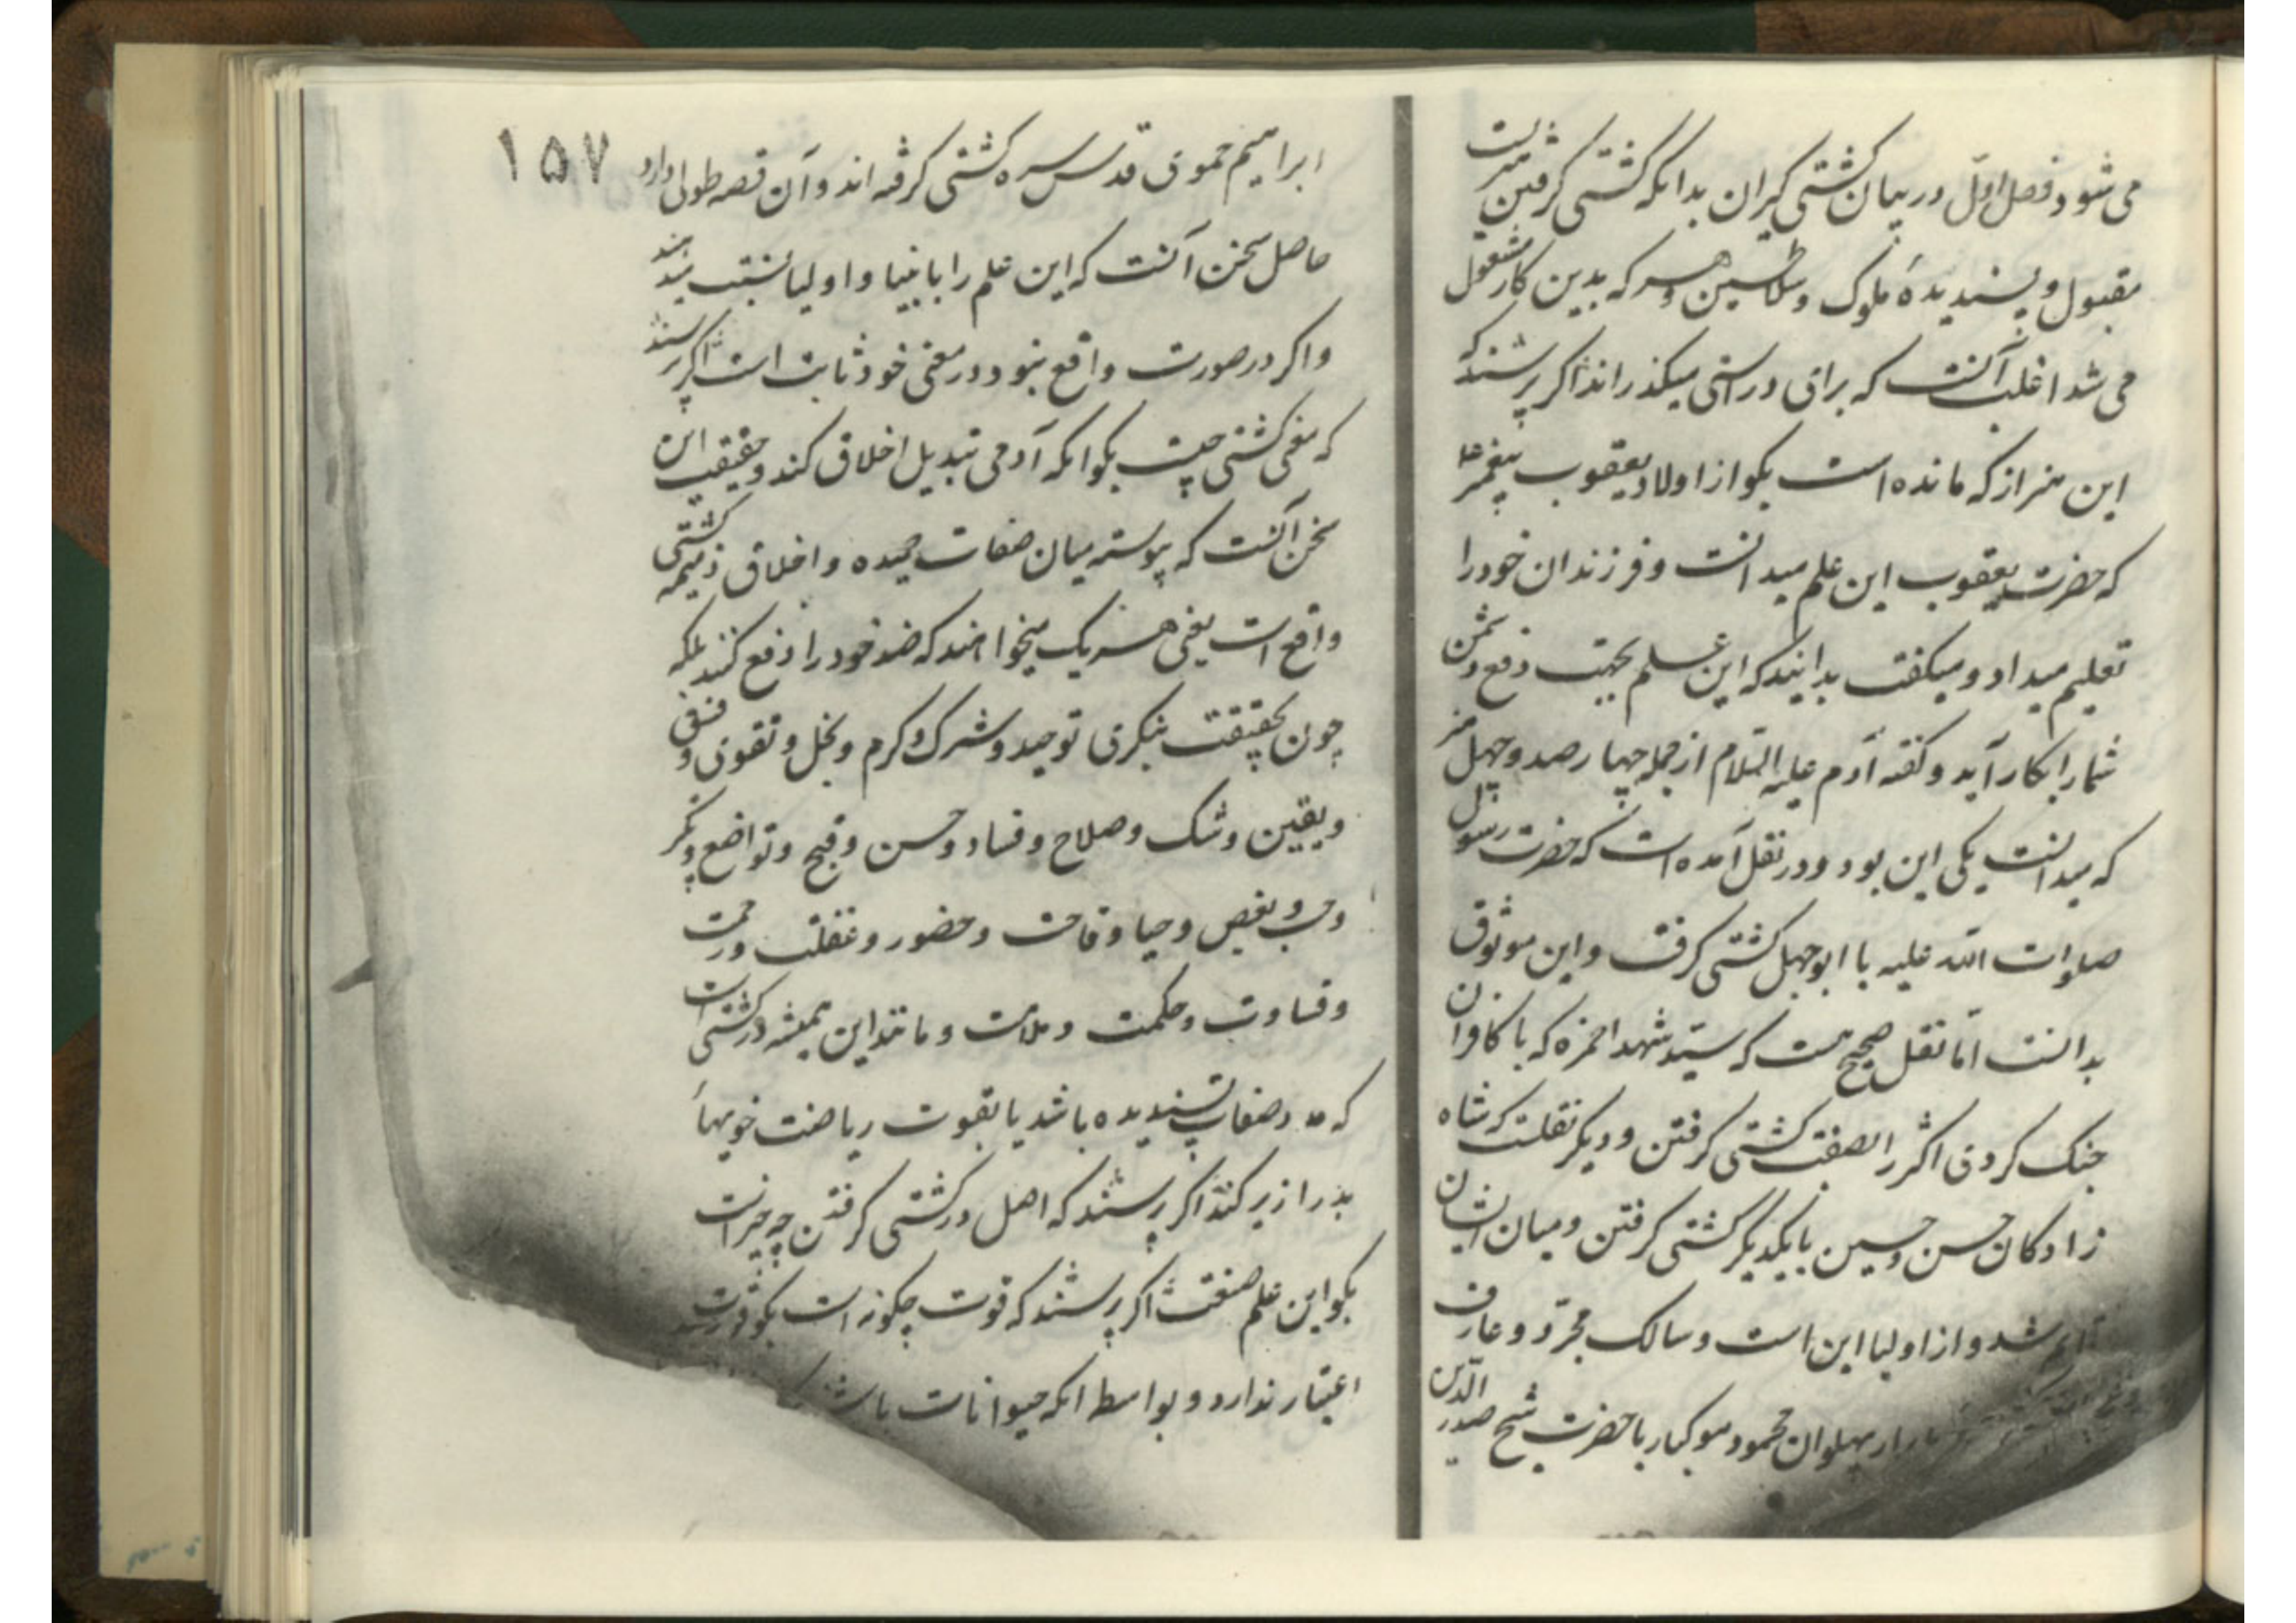 می شود فصل اول در بیان کشتی گیران بدانکه کشتی گرفتن هنریست
مقبول و پسندیدهٔ ملوک و سلاطین و هر که بدین کار مشغول
می شد اغلب آنست که برای و راستی میگذراند اگر پرسند که
این هنر از که مانده است بگو از اولاد یعقوب پیغمبر ع
که حضرت یعقوب این علم میدانست و فرزندان خود را
تعلیم میداد و میگفت بدانید که این علم بجهت دفع دشمن
شما را بکار آید و گفته آدم علیه السلام از جمله چهارصد و چهل هنر
که میدانست یکی این بود و در نقل آمده است که حضرت رسول
صلوات الله علیه با ابوجهل کشتی گرفت و این موثوق
بدانست اما نقل صحیح هست که سید شهدا حمزه که با کافران
جنک کردی اکثر را بصفت کشتی گرفتن و دیگر نقلست که شاه
زادگان حسن و حسین بایکدیگر کشتی گرفتن و میان ایشان
قایم شد و از اولیا این است و سالک مجرد و عارف
پهلوان محمود موکیار با حضرت شیخ صدر الدین
ابراهیم حموی قدس سره کشتی گرفته اند و آن قصه طولی دارد ۱۵۷
حاصل سخن آنست که این علم را با نبیا و اولیا نسبت میدهند
و اگر در صورت واقع نبود در معنی خود ثابت است اگر پرسند
که معنی کشتی چیست بگو آنکه آدمی تبدیل اخلاق کند و حقیقت این
سخن آنست که پیوسته میان صفات حمیده و اخلاق ذمیمه کشتی
واقع است یعنی هر یک میخواهند که ضد خود را دفع کنند بلکه
چون بحقیقت بنگری توحید و شرک و کرم و بخل و تقوی و فسق
و یقین و شک و صلاح و فساد و حسن و قبح و تواضع و تکبر
و حب و بغض و حیا و قاحت و حضور و غفلت و رحمت
و قساوت و حکمت و ملامت و مانند این همیشه در کشتی است
که مدد صفات پسندیده باشد یا بقوت ریاضت خویهاء
بد را زیر کند اگر پرسند که اصل در کشتی گرفتن چه چیز است
بگو این علم صنعت اگر پرسند که قوت چگونه است بگو قوت
اعتبار ندارد و بواسطه آنکه حیوانات باشند